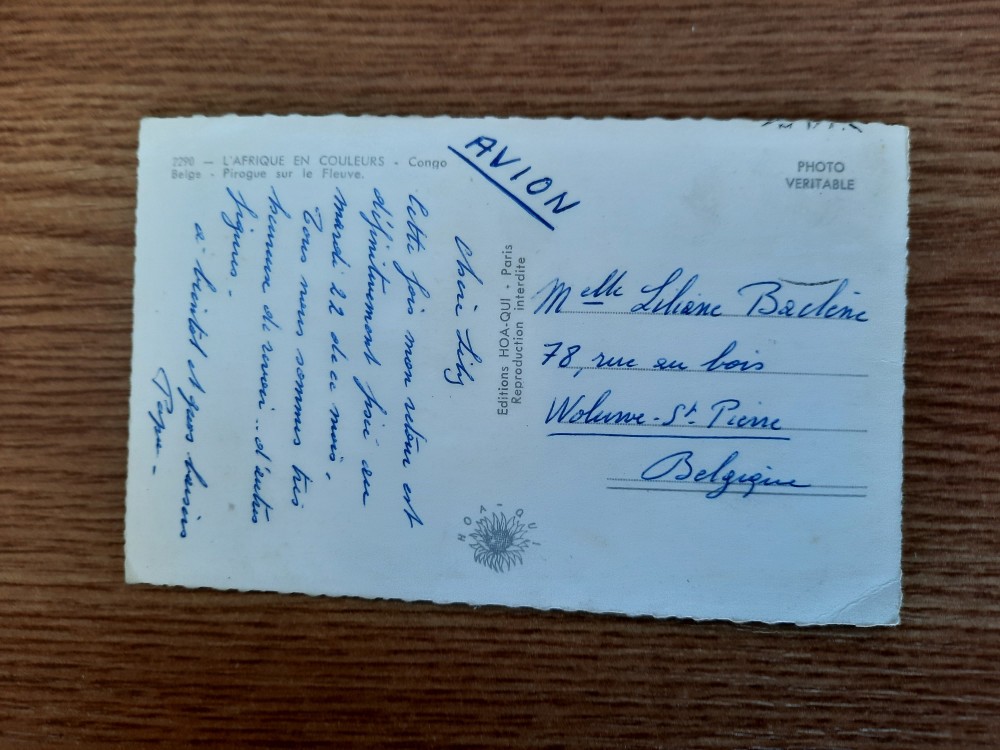 2290 — L'AFRIQUE EN COULEURS - Congo
Belge - Pirogue sur le Fleuve.
AVION
PHOTO
VERITABLE
Chère Lily
Cette fois mon retour est
définitivement fixé au
mardi 22 de ce mois.
Tous nous sommes très
heureux de revoir.. d'autres
figures -
à bientôt et gros baisers
Papa -
Editions HOA-QUI - Paris
Reproduction interdite
HOA-QUI
Melle Liliane
78, rue au bois
Woluwe-St. Pierre
Belgique